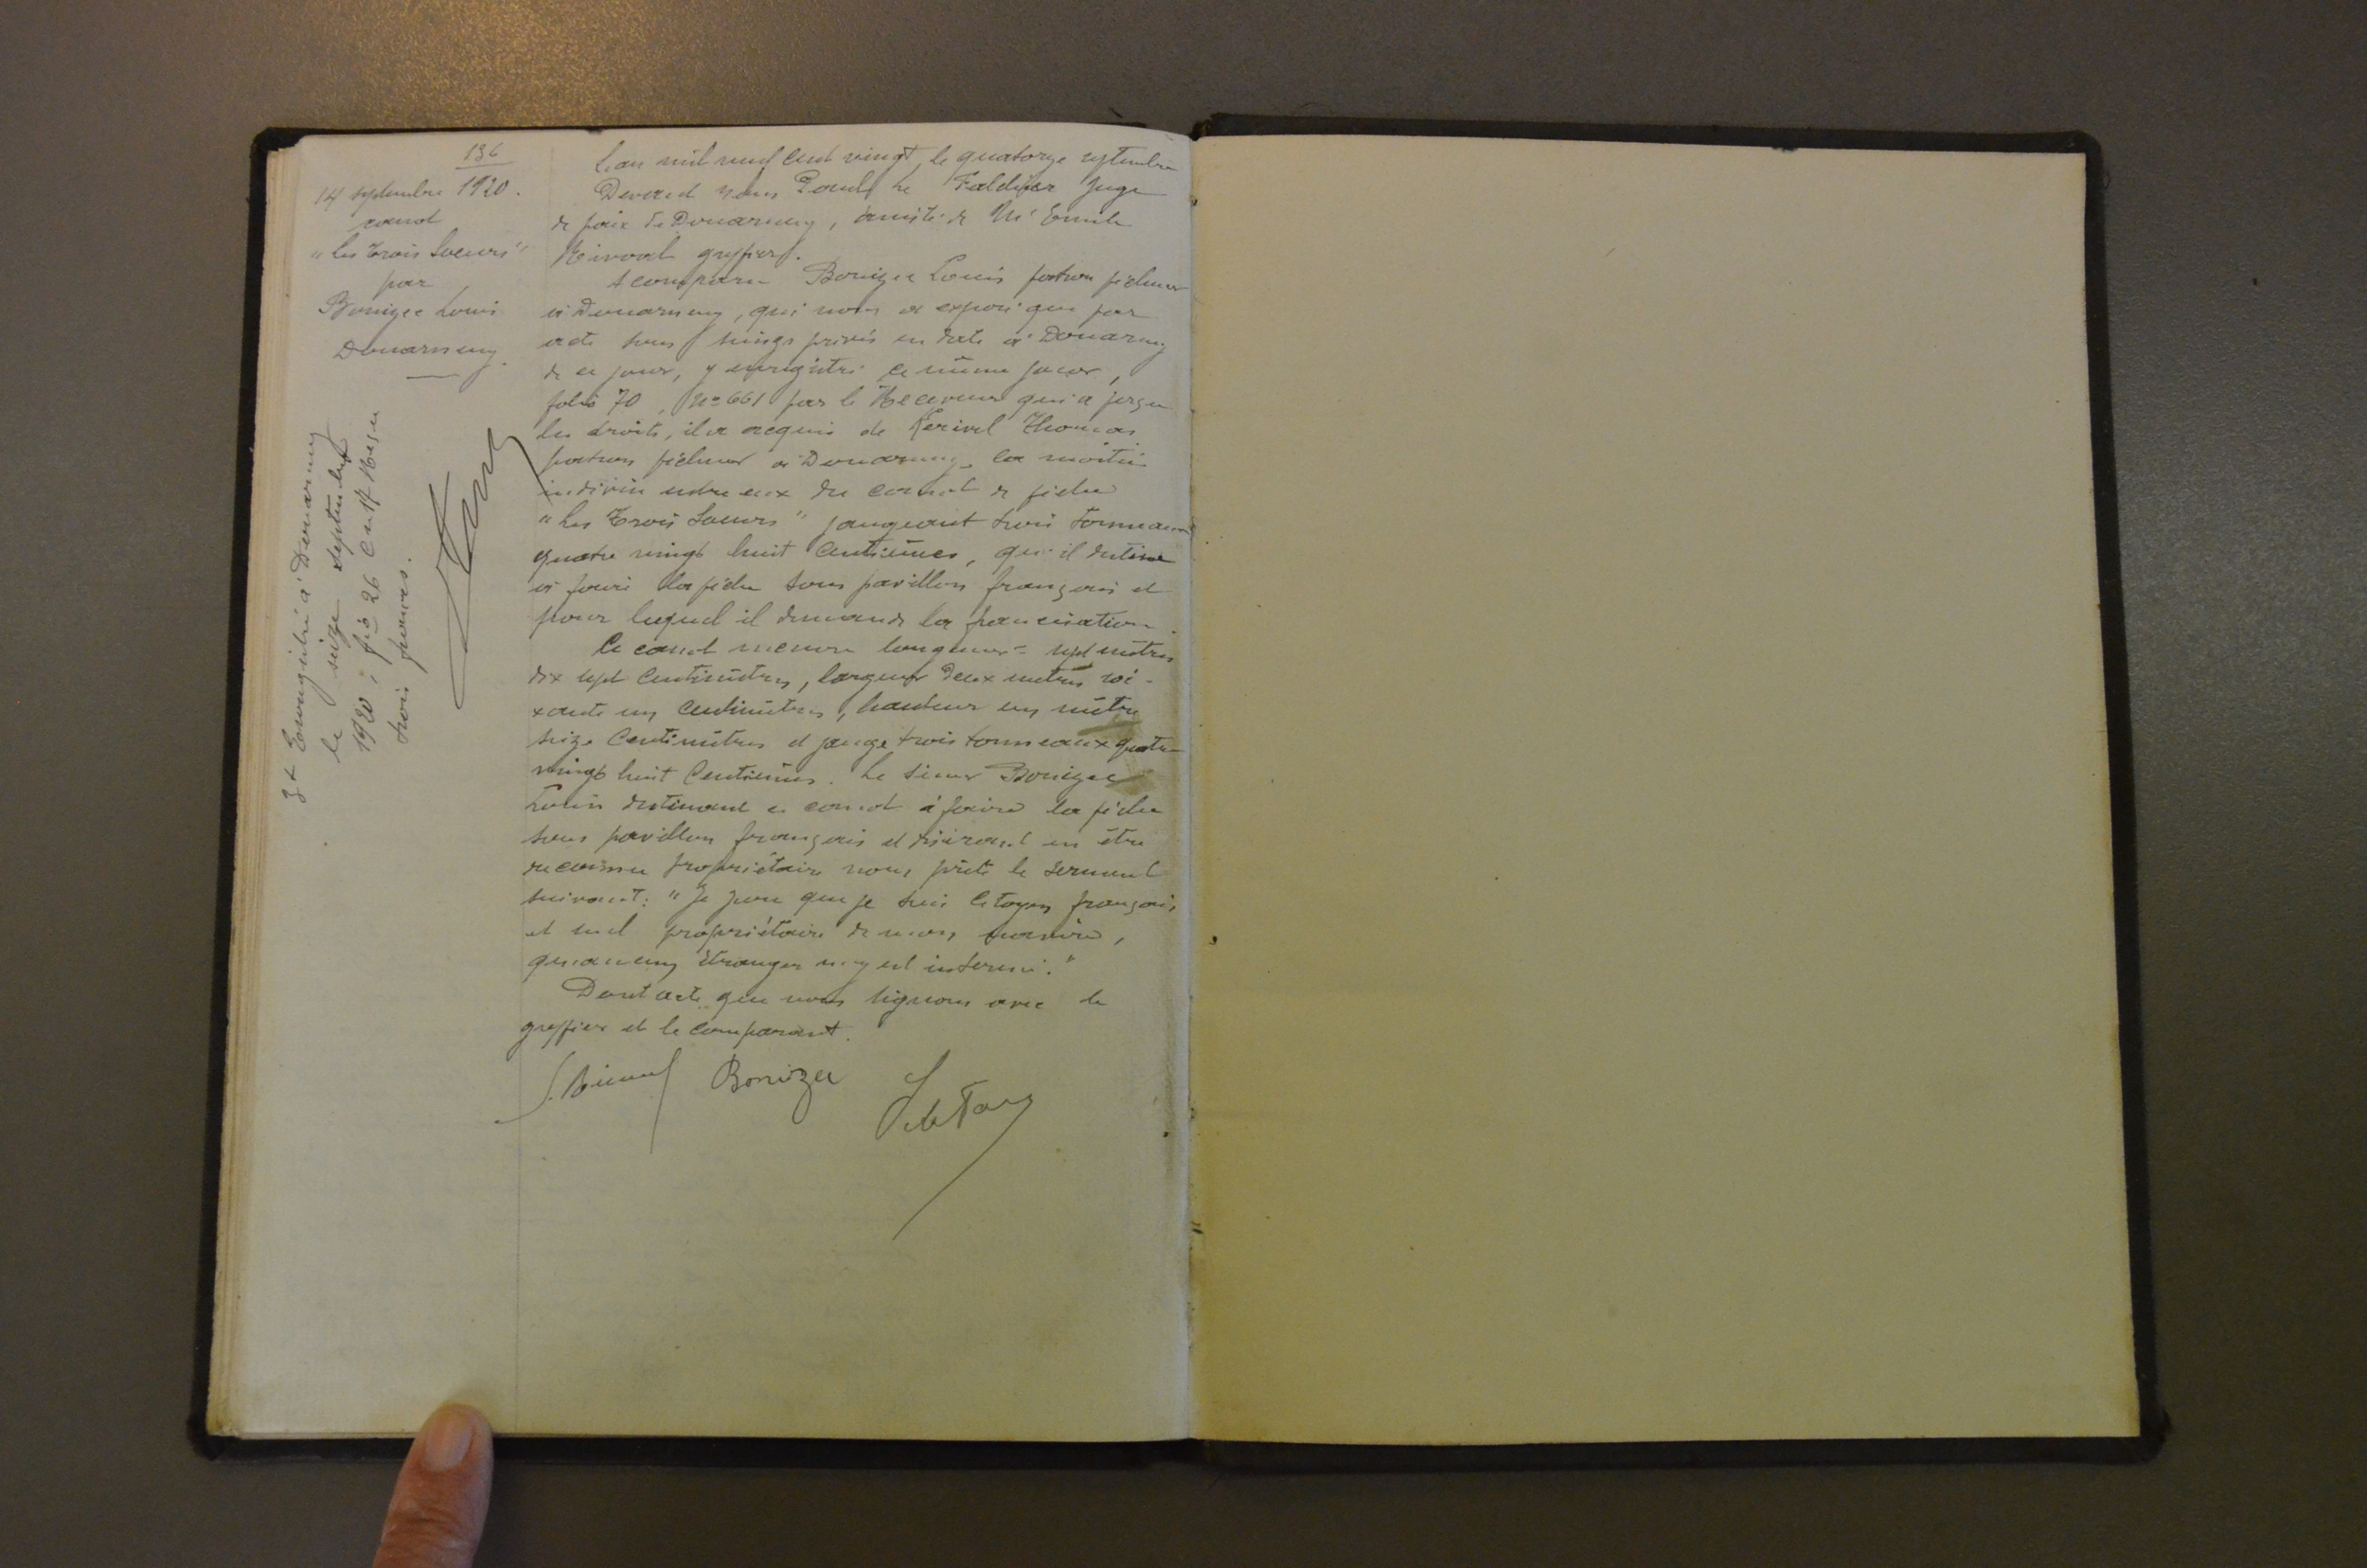 136
14 septembre 1920.
canot
"Les Trois Soeurs"
par
Bonizec Louis
Douarnenez.
3f Enregistré à Douarnenez
le seize septembre
1920, fo 26 Cse 17 Reçu
trois francs.
L'an mil neuf cent vingt, le quatorze septembre
Devant nous Paul Le Juge
de paix de Douarnenez, assisté de Me Emile
greffier.
A comparu Bonizec Louis patron pêcheur
à Douarnenez, qui nous a exposé que par
acte sous seings privés en date à Douarnenez
de ce jour, y enregistré ce même jour,
folio 70, No 661 par le Receveur qui a perçu
les droits, il a acquis de Kerivel Thomas
patron pêcheur à Douarnenez, la moitié
indivise entre eux du canot de pêche
"Les Trois Soeurs" jaugeant trois tonneaux
quatre vingt huit centièmes, qu'il destine
à faire la pêche sous pavillon français et
pour lequel il demande la francisation.
Ce canot mesure longueur = sept mètres
dix sept centimètres, largeur deux mètres soi-
xante un centimètres, hauteur un mètre
seize centimètres et jauge trois tonneaux quatre
vingt huit centièmes. Le sieur Bonizec
Louis destinant ce canot à faire la pêche
sous pavillon français et désirant en être
reconnu propriétaire nous prête le serment
suivant: "Je jure que je suis citoyen français
et seul propriétaire de mon navire,
qu'aucun étranger n'y est intéressé."
Dont acte que nous signons avec le
greffier et le comparant.
Bonizec